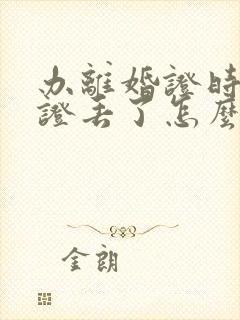 办離婚證時
證丢了怎麼
金朗